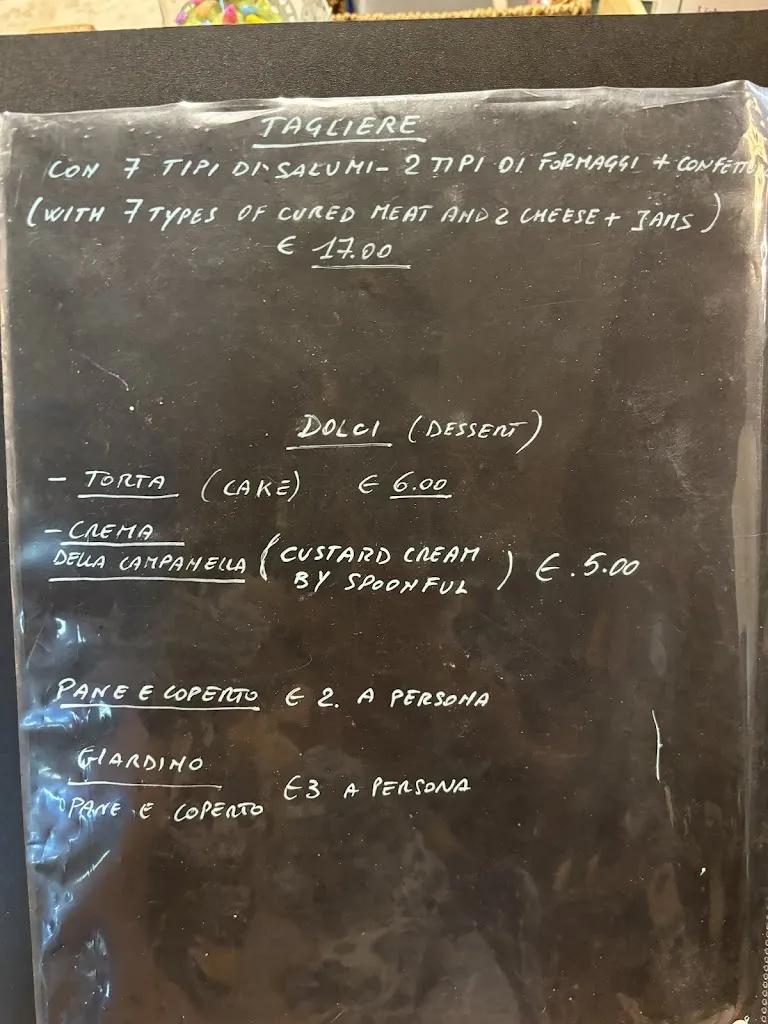 TAGLIERE
CON 7 TIPI DI SALUMI- 2 TIPI DI FORMAGGI +
(WITH 7 TYPES OF CURED MEAT AND 2 CHEESE + JAMS)
€ 17.00
DOLCI (DESSERT)
- TORTA (CAKE) € 6.00
- CREMA
DELLA CAMPANELLA (CUSTARD CREAM
BY SPOONFUL) €.5.00
PANE E COPERTO € 2. A PERSONA
GIARDINO
PANE E COPERTO €3 A PERSONA